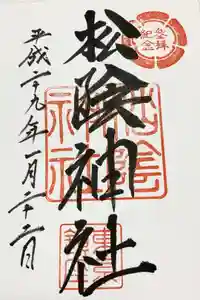 参拝
記念
松陰神社
平成二十九年一月二十二日
松陰
神社